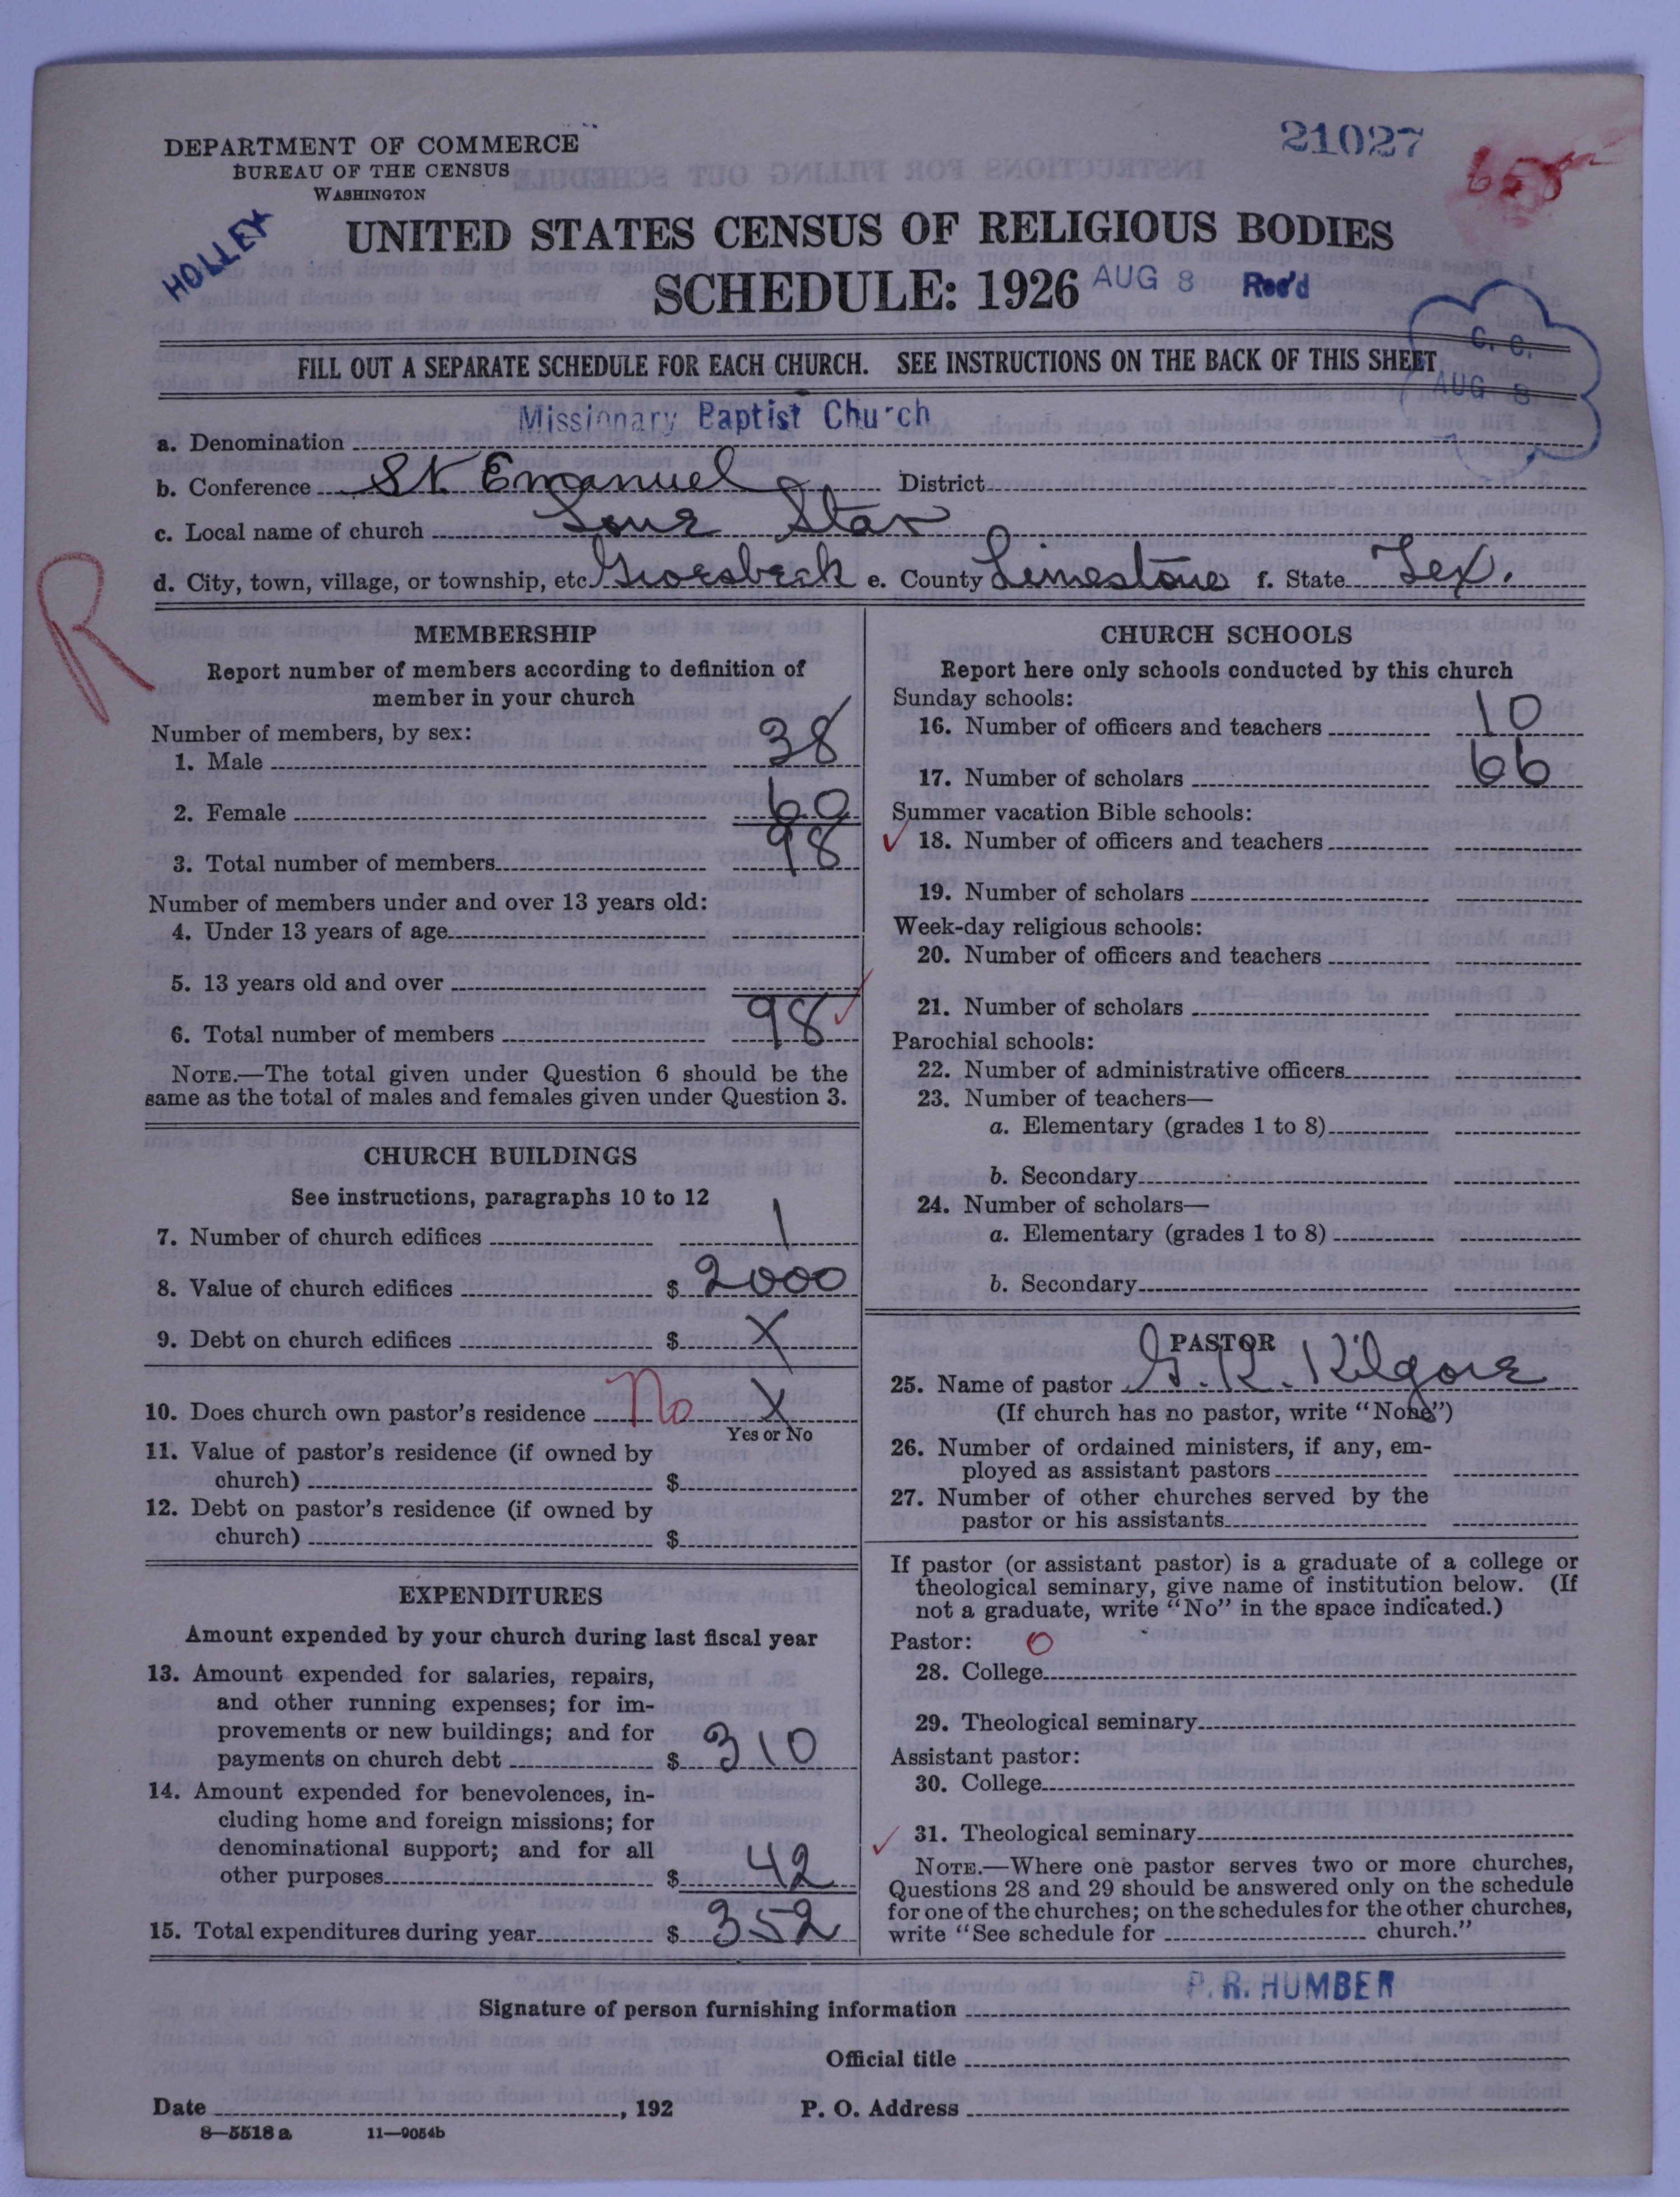 DEPARTMENT OF COMMERCE
BUREAU OF THE CENSUS
WASHINGTON
21027
HOLLEY
UNITED STATES CENSUS OF RELIGIOUS BODIES
SCHEDULE: 1926 AUG 8 Rec'd
FILL OUT A SEPARATE SCHEDULE FOR EACH CHURCH. SEE INSTRUCTIONS ON THE BACK OF THIS SHEET
C. C.
AUG 8
a. Denomination Missionary Baptist Church
b. Conference St Emanuel District
c. Local name of church Lone Star
d. City, town, village, or township, etc. Groesbeck e. County Limestone f. State Tex.
R
MEMBERSHIP
Report number of members according to definition of
member in your church
Number of members, by sex:
1. Male 38
2. Female 60
3. Total number of members 98
Number of members under and over 13 years old:
4. Under 13 years of age
5. 13 years old and over
6. Total number of members 98
NOTE.—The total given under Question 6 should be the
same as the total of males and females given under Question 3.
CHURCH BUILDINGS
See instructions, paragraphs 10 to 12
7. Number of church edifices 1
8. Value of church edifices $ 2000
9. Debt on church edifices $ X
10. Does church own pastor's residence No X
Yes or No
11. Value of pastor's residence (if owned by
church) $
12. Debt on pastor's residence (if owned by
church) $
EXPENDITURES
Amount expended by your church during last fiscal year
13. Amount expended for salaries, repairs,
and other running expenses; for im-
provements or new buildings; and for
payments on church debt $ 310
14. Amount expended for benevolences, in-
cluding home and foreign missions; for
denominational support; and for all
other purposes $ 42
15. Total expenditures during year $ 352
CHURCH SCHOOLS
Report here only schools conducted by this church
Sunday schools:
16. Number of officers and teachers 10
17. Number of scholars 66
Summer vacation Bible schools:
18. Number of officers and teachers
19. Number of scholars
Week-day religious schools:
20. Number of officers and teachers
21. Number of scholars
Parochial schools:
22. Number of administrative officers
23. Number of teachers—
a. Elementary (grades 1 to 8)
b. Secondary
24. Number of scholars—
a. Elementary (grades 1 to 8)
b. Secondary
PASTOR
25. Name of pastor G. R. Kilgore
(If church has no pastor, write "None")
26. Number of ordained ministers, if any, em-
ployed as assistant pastors
27. Number of other churches served by the
pastor or his assistants
If pastor (or assistant pastor) is a graduate of a college or
theological seminary, give name of institution below. (If
not a graduate, write "No" in the space indicated.)
Pastor: O
28. College
29. Theological seminary
Assistant pastor:
30. College
31. Theological seminary
NOTE.—Where one pastor serves two or more churches,
Questions 28 and 29 should be answered only on the schedule
for one of the churches; on the schedules for the other churches,
write "See schedule for church."
Signature of person furnishing information P. R. HUMBER
Official title
Date , 192 P. O. Address
8—5518 a 11—9054b